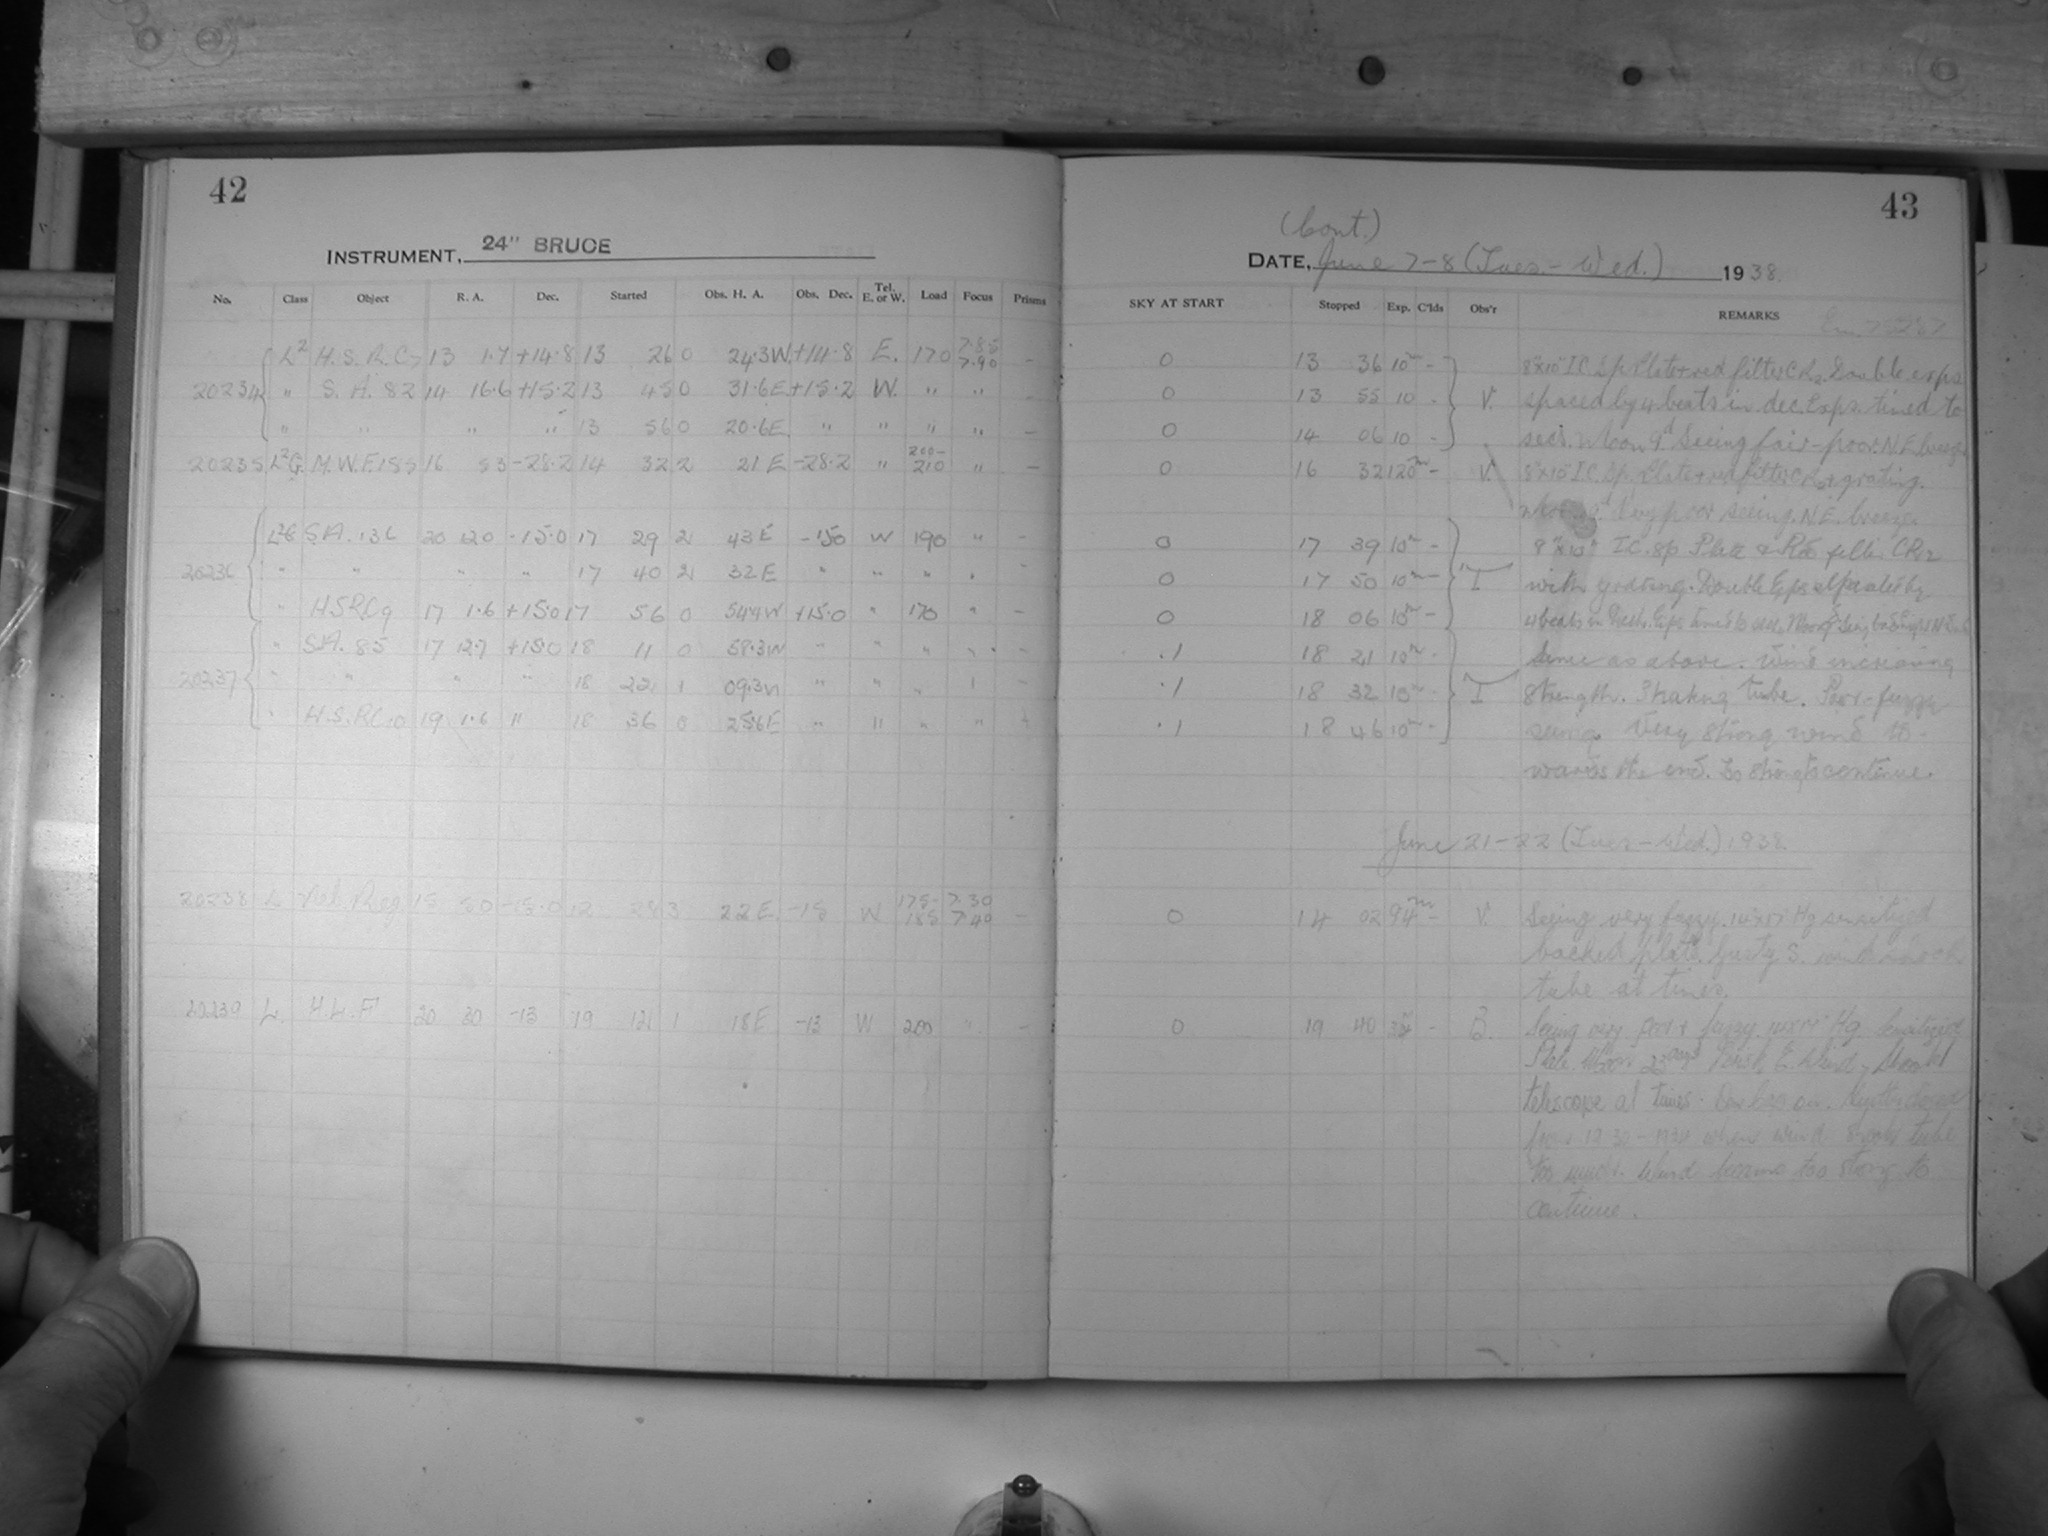 42
INSTRUMENT, 24" BRUCE
No. Class Object R. A. Dec. Started Obs. H. A. Obs. Dec. Tel. E. or W. Load Focus Prisms
L² H.S.R.C7 13 1.7 +14.8 13 26 0 24.3W +14.8 E. 170 7.85 7.90 –
20234 " S. A. 82 14 16.6 +15.2 13 45 0 31.6E +15.2 W. " " –
" " " " 13 56 0 20.6E " " " " –
20235 L²G. M.W.F. 16 53 -28.2 14 32 2 21 E -28.2 " 200- 210 " –
S.A. 136 20 12.0 -15.0 17 29 2 43E -15.0 W 190 " –
20236 " " " " 17 40 2 32E " " " " –
" HSRC9 17 1.6 +15.0 17 56 0 54.4W +15.0 " 170 " –
" S.A. 85 17 12.7 +15.0 18 11 0 58.3W " " " " –
20237 " " " " 18 22 1 09.3W " " " –
" H.S.RC10 19 1.6 " 18 36 0 25.6E " " " "
20238 L Neb. Reg 15 50 -15.0 12 28 3 22E -15 W 175- 185 7.30 7.40 –
20239 L. H.L.F 20 30 -13 19 12 1 18E -13 W 200 " –
43
(Cont.)
DATE, June 7-8 (Tues-Wed.) 1938.
SKY AT START Stopped Exp. C'lds Obs'r REMARKS
0 13 36 10ᵐ – 8"x10" I.C. Sp. Plate + red filter CR₂. Double exps
0 13 55 10 – V. spaced by 4 beats in dec. Exps. timed to
0 14 06 10 – secs. Moon 9ᵈ Seeing fair-poor. N.E. breeze
0 16 32 120ᵐ – V. 8"x10" I.C. Sp. Plate + red filter CR₂ + grating.
Moon 9ᵈ. Very poor seeing. N.E. breeze
0 17 39 10ᵐ – 8"x10" I.C. Sp Plate & Red filter CR₂
0 17 50 10ᵐ – I with grating. Double Exps separated by
0 18 06 10ᵐ – 4 beats in Exps timed to secs.
.1 18 21 10ᵐ – Same as above. Wind increasing
.1 18 32 10ᵐ – I strength. Shaking tube. Poor-fuzzy
.1 18 46 10ᵐ – seeing. Very strong wind to-
wards the end. Too strong to continue.
June 21-22 (Tues-Wed.) 1938.
0 14 02 94ᵐ – V. Seeing very fuzzy. 14"x17" Hg sensitized
backed plate. Gusty S. wind shook
tube at times.
0 19 40 – B. Seeing very poor + fuzzy. 14x17" Hg. Sensitized
Plate. Moon E. Wind, shook
telescope at times.
from 19 30 - 1934 when wind shook tube
too much. Wind became too strong to
continue.